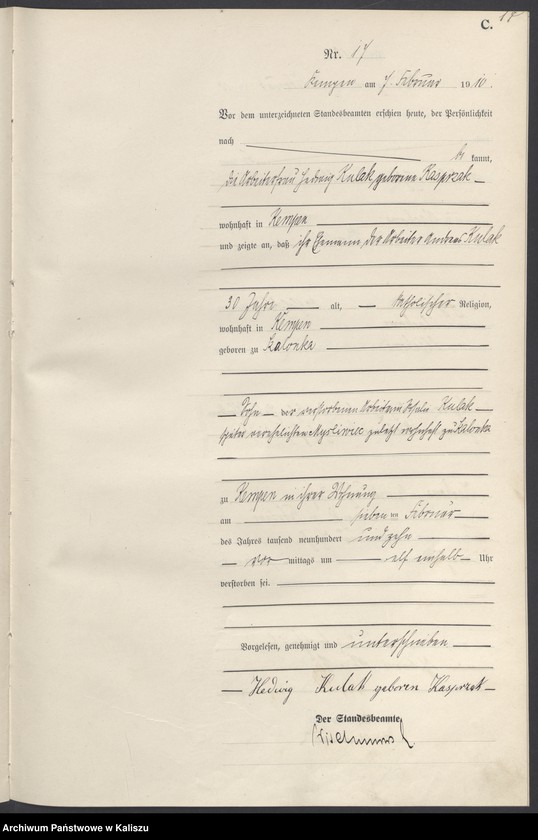 18
C.
Nr. 17
Kempen am 7 Februar 1910.
Vor dem unterzeichneten Standesbeamten erschien heute, der Persönlichkeit
nach be kannt,
die Arbeiterfrau Hedwig Kulak, geborene Kasprzak
wohnhaft in Kempen
und zeigte an, daß ihr Ehemann, der Arbeiter Andreas Kulak
30 Jahre alt, katholischer Religion,
wohnhaft in Kempen
geboren zu
Sohn der verstorbenen Kulak
später verehelichten Mysliwiec zuletzt wohnhaft zu
zu Kempen in ihrer Wohnung
am sieben ten Februar
des Jahres tausend neunhundert und zehn
vor mittags um elf einhalb Uhr
verstorben sei.
Vorgelesen, genehmigt und unterschrieben
Hedwig Kulak geboren Kasprzak
Der Standesbeamte.
Archiwum Państwowe w Kaliszu